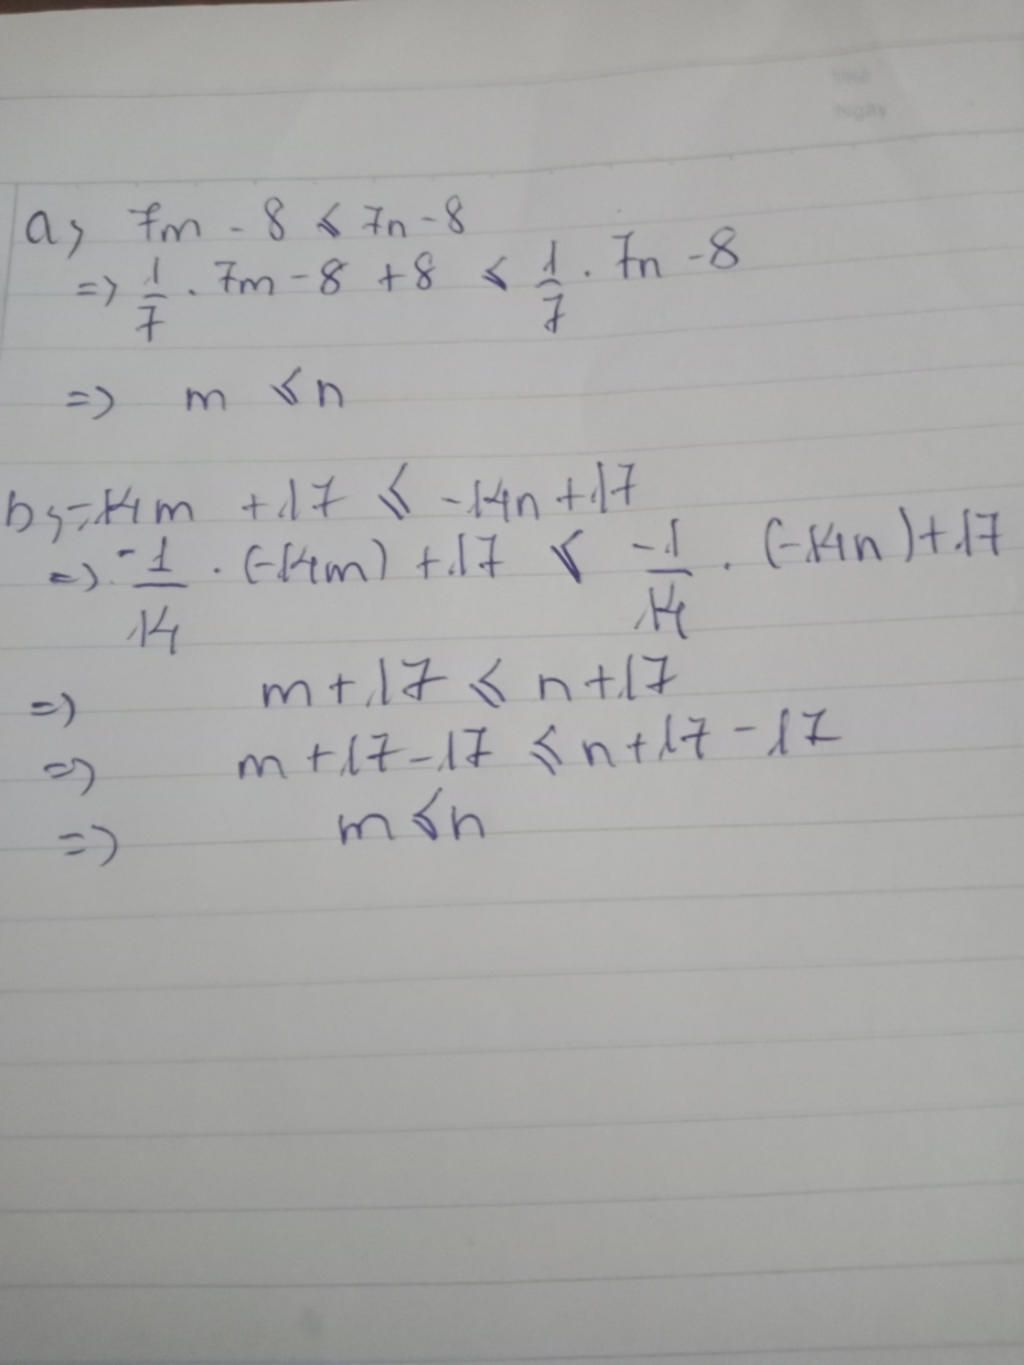 a) 7m - 8 ⩽ 7n - 8
=> 1/7 . 7m - 8 + 8 ⩽ 1/7 . 7n - 8
=> m ⩽ n
b) -14m + 17 ⩽ -14n + 17
=> -1/14 . (-14m) + 17 ⩽ -1/14 . (-14n) + 17
=> m + 17 ⩽ n + 17
=> m + 17 - 17 ⩽ n + 17 - 17
=> m ⩽ n